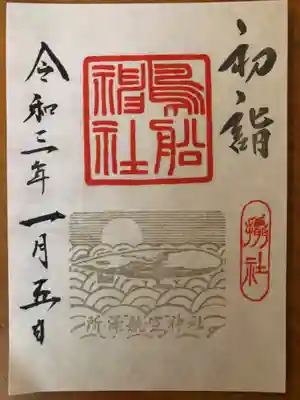 初詣
鳥船
神社
攝社
所澤航空神社
令和三年一月五日